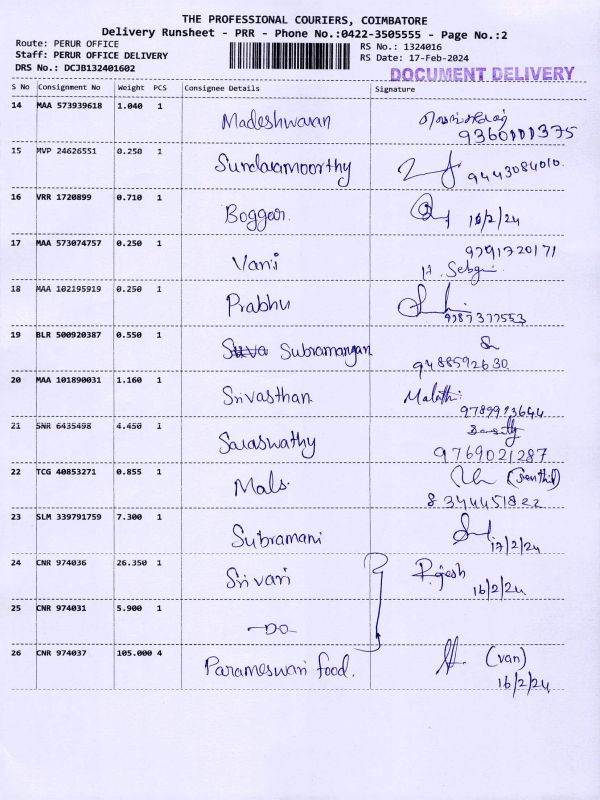 THE PROFESSIONAL COURIERS, COIMBATORE
Delivery Runsheet - PRR - Phone No.:0422-3505555 - Page No.:2
Route: PERUR OFFICE
RS No.: 1324016
Staff: PERUR OFFICE DELIVERY
RS Date: 17-Feb-2024
DRS No.: DCJB132401602
DOCUMENT DELIVERY
S No Consignment No Weight PCS Consignee Details Signature
14 MAA 573939618 1.040 1 Madeshwaran
15 MVP 24626551 0.250 1 Sundaamoorthy 9443084010.
16 VRR 1720899 0.710 1 Boggar. 16/2/24
17 MAA 573074757 0.250 1 Vani 9791720171
18 MAA 102195919 0.250 1 Prabhu
19 BLR 500920387 0.550 1 Subramangan
9488592630
20 MAA 101890031 1.160 1 Srivasthan Malathi
21 SNR 6435498 4.450 1 Saraswathy
9769021287
22 TCG 40853271 0.855 1 Mals. (Senthil)
8344451822
23 SLM 339791759 7.300 1 Subramani
17/2/24
24 CNR 974036 26.350 1 Srivari Rajesh
16/2/24
25 CNR 974031 5.900 1 -DO-
26 CNR 974037 105.000 4 Parameswari food. (van)
16/2/24